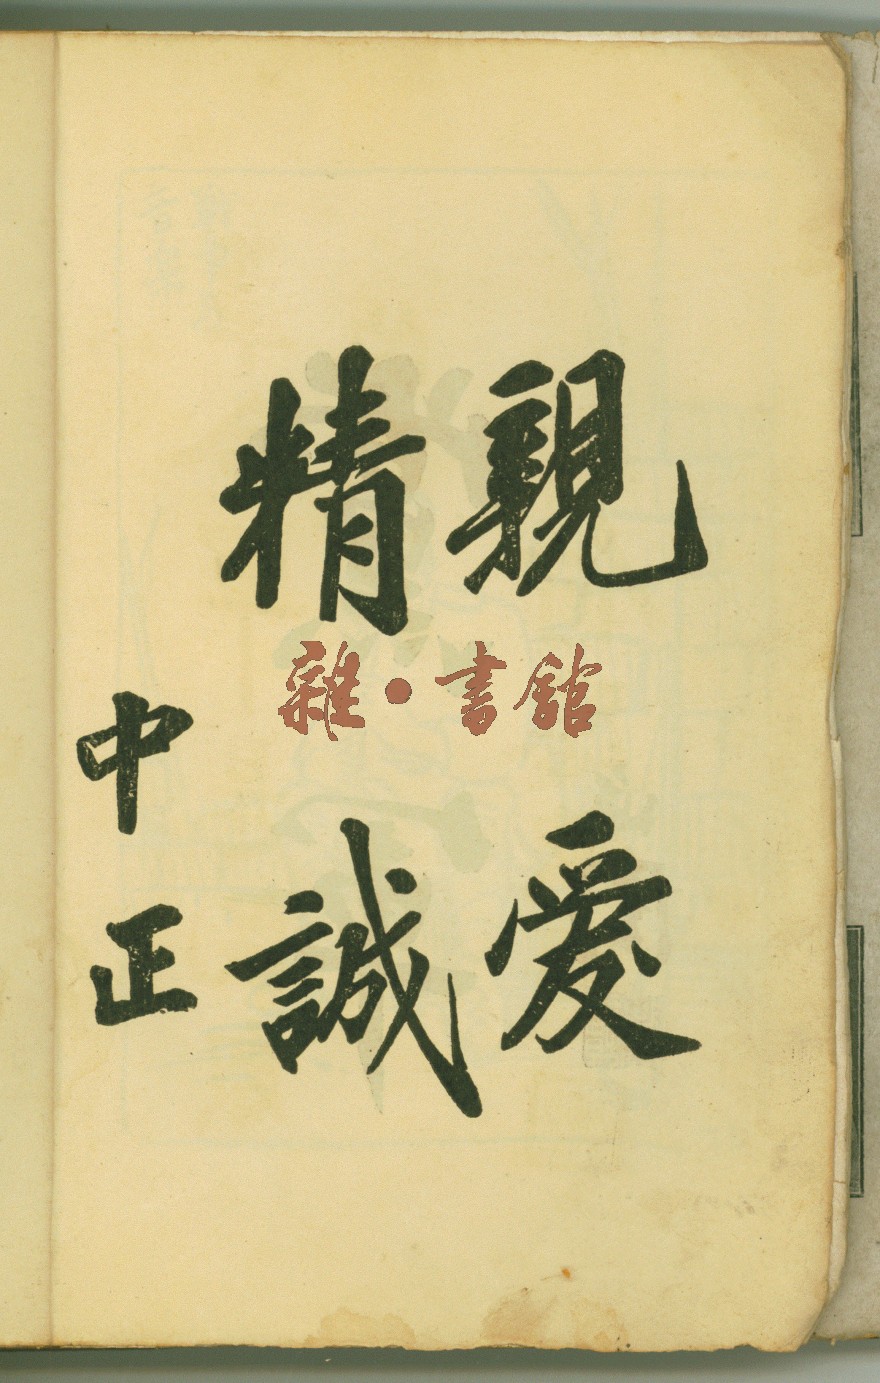 親愛
精誠
中正
雜·書館